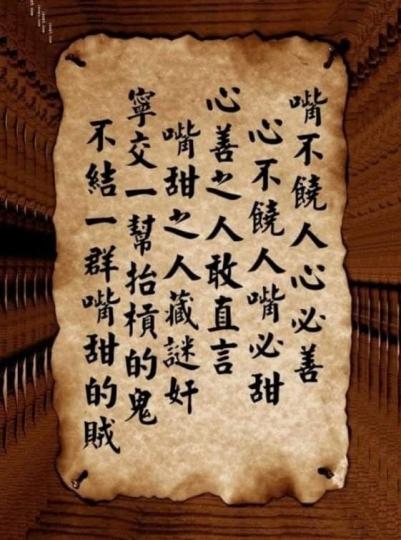 嘴不饒人心必善
心不饒人嘴必甜
心善之人敢直言
嘴甜之人藏謎奸
寧交一幫抬槓的鬼
不結一群嘴甜的賊